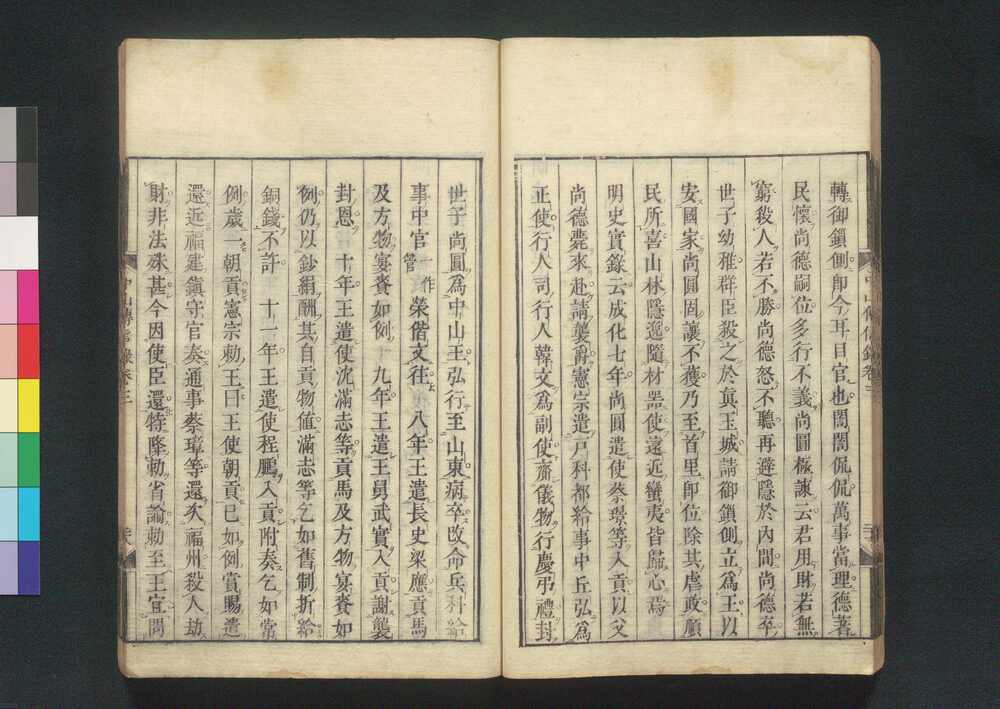 轉御鎖側即今耳目官也誾誾侃侃萬事當理德著
民懷尚德嗣位多行不義尚圓極諫云君用財若無
窮殺人若不勝尚德怒不聽再避隱於內間尚德卒
世子幼稚群臣殺之於真玉城請御鎖側立爲王以
安國家尚圓固讓不獲乃至首里即位除其虐政順
民所喜山林隱逸隨材器使遠近蠻夷皆歸心焉
明史實錄云成化七年尚圓遣使蔡璟等入貢以父
尚德薨來赴請襲爵憲宗遣戸科都給事中丘弘爲
正使行人司行人韓文爲副使齎儀物行慶弔禮封
世子尚圓爲中山王弘行至山東病卒改命兵科給
事中官一作管榮偕文往 八年王遣長史梁應貢馬
及方物宴賚如例 九年王遣王舅武實入貢謝襲
封恩 十年王遣使沈滿志等貢馬及方物宴賚如
例仍以鈔絹酬其自貢物値滿志等乞如舊制折給
銅錢不許 十一年王遣使程鵬入貢附奏乞如常
例歲一朝貢憲宗勅王曰王使朝貢已如例賞賜遣
還近福建鎮守官奏通事蔡璋等還次福州殺人劫
財非法殊甚今因使臣還特降勅省諭勅至王宜問
中山傳信錄卷三
中山傳信錄卷三